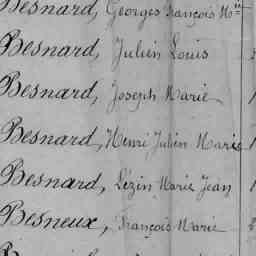 Besnard, Georges François M
Besnard, Julien Louis
Besnard, Joseph Marie
Besnard, Henri Julien Marie
Besnard, Lézin Marie Jean
Besneux, François Marie